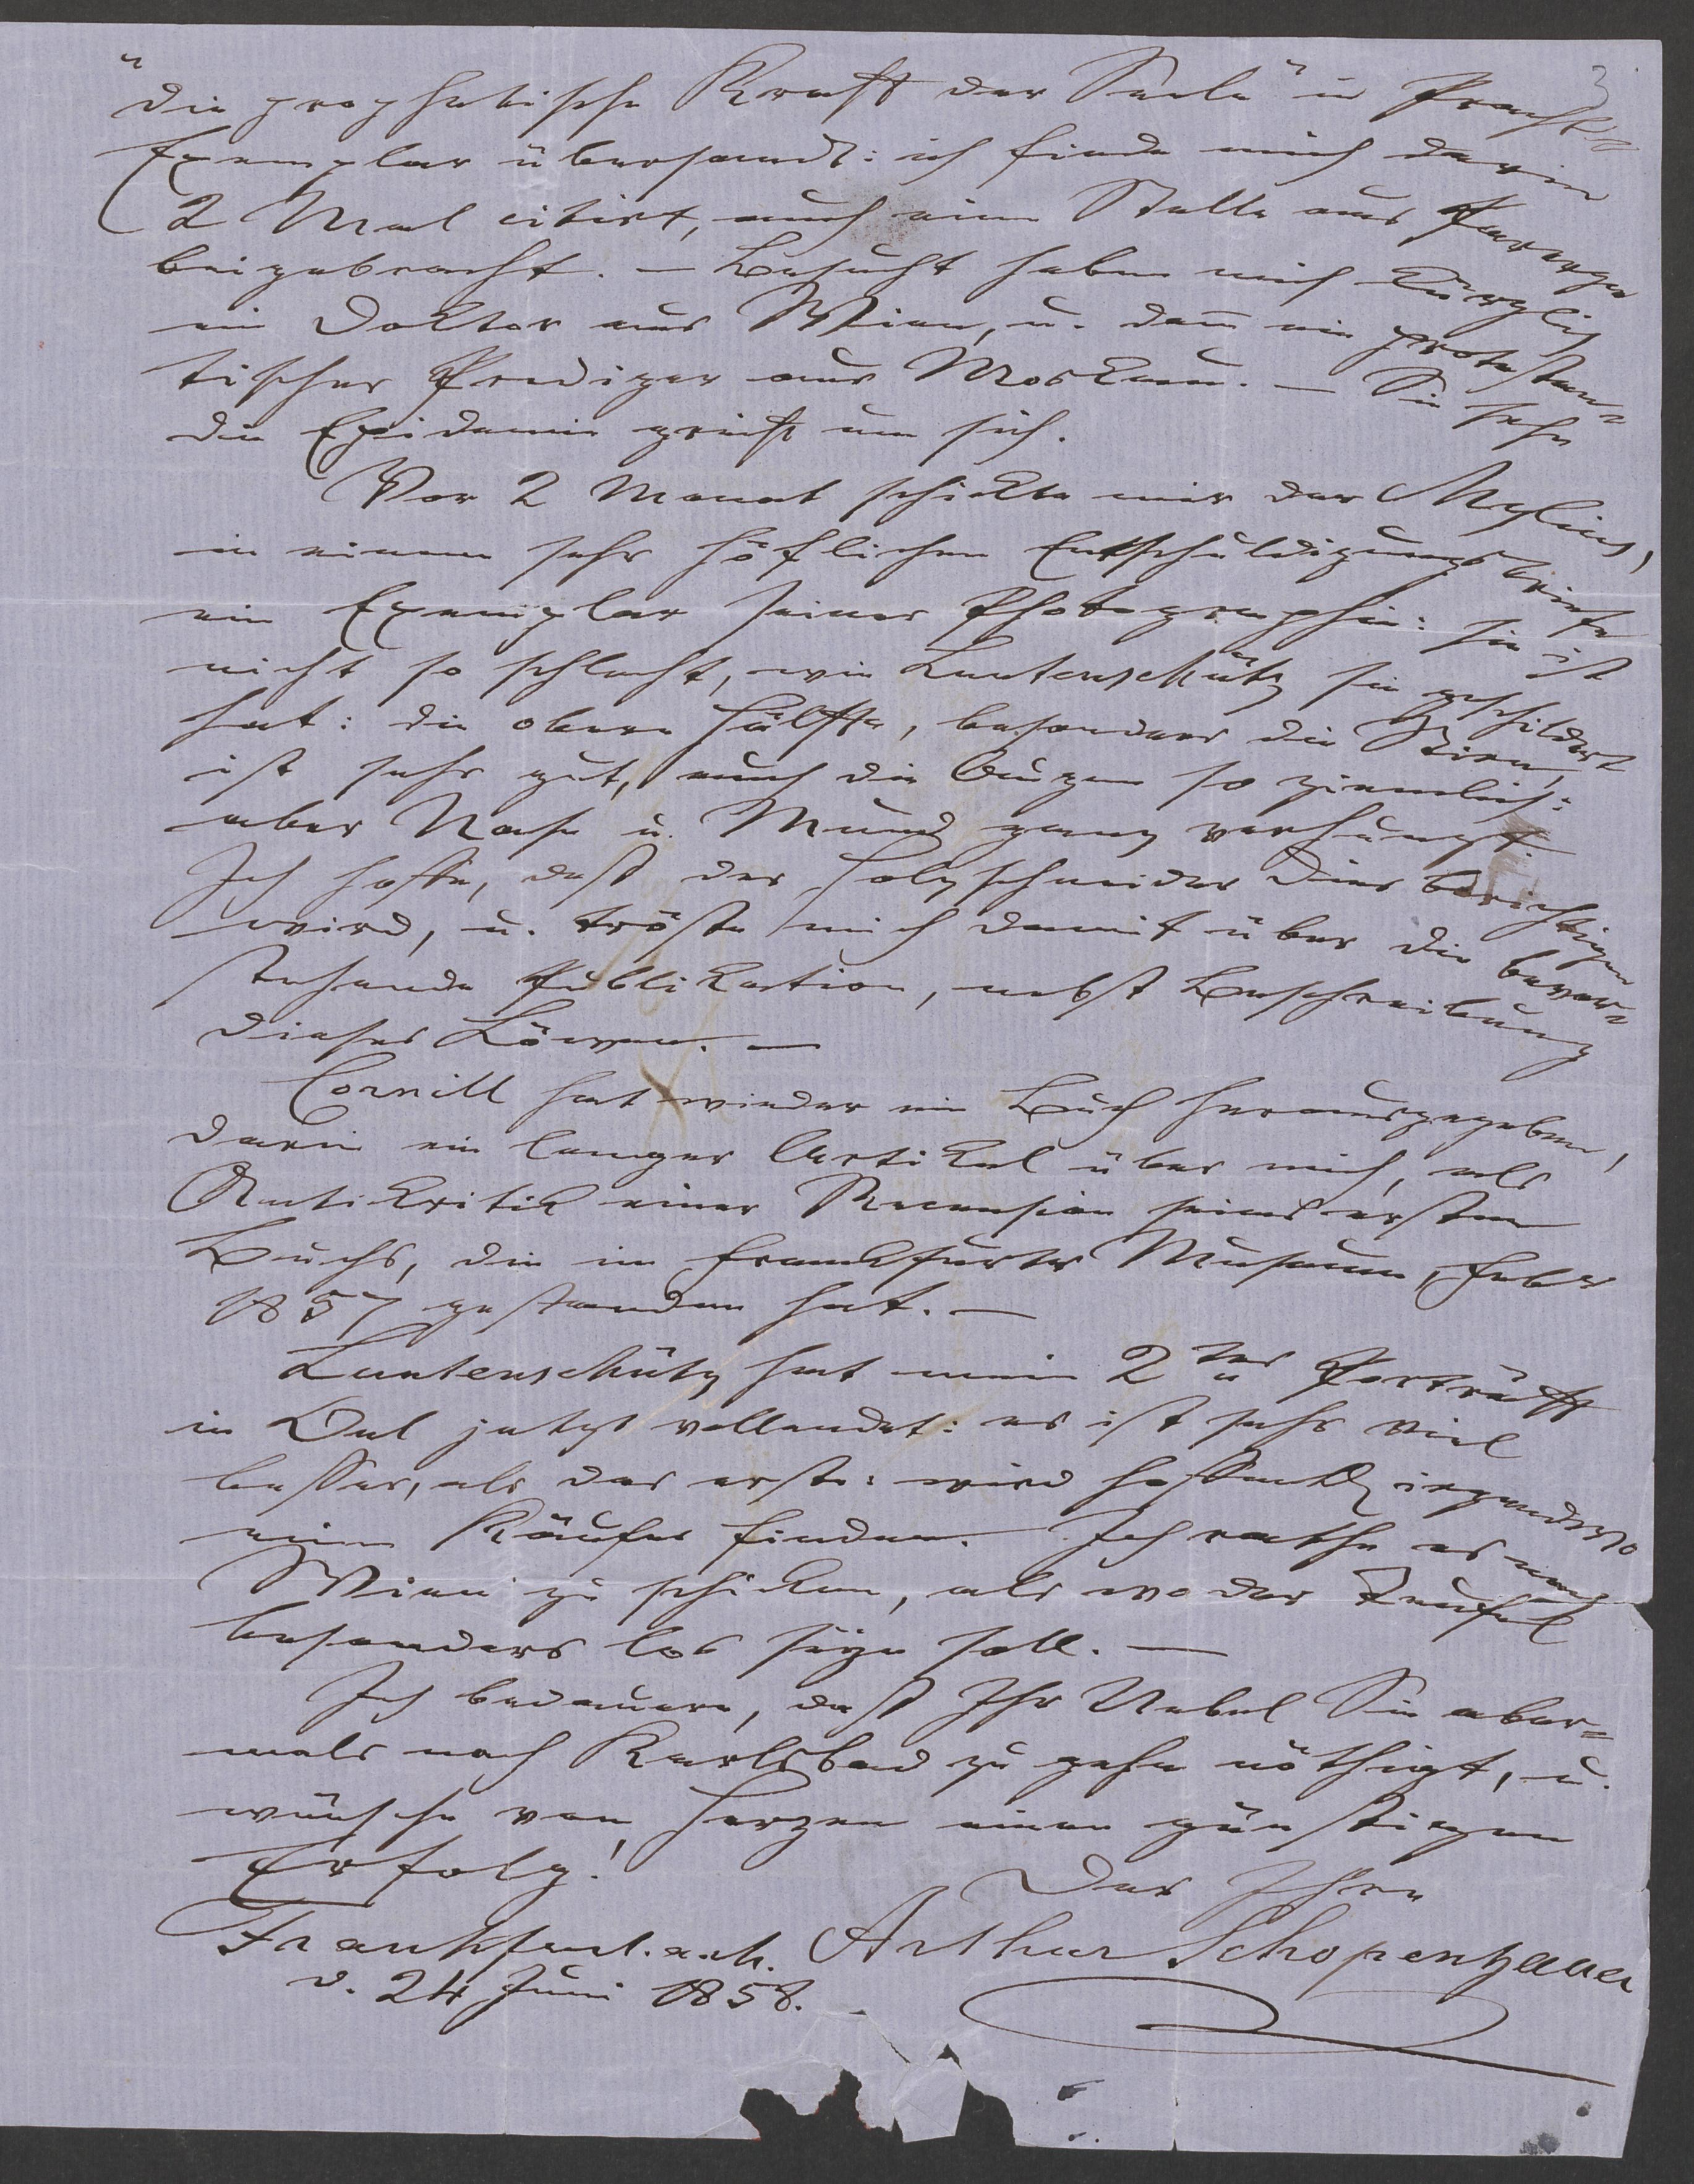 3
„die prophetische Kraft der Seele" in Pracht-
Exemplar übersandt: ich finde mich darin
2 Mal citirt, auch eine Stelle aus Parerga
beigebracht. — Besucht haben mich kürzlich
ein Doktor aus Wien, u. dann ein protestan-
tischer Prediger aus Moskau. — Sie sehn
die Epidemie greift um sich.
Vor 2 Monat schickte mir der Mylius,
in einem sehr höflichen Entschuldigungsbriefe
ein Exemplar seiner Photographie: sie ist
nicht so schlecht, wie Lunteschütz sie geschildert
hat: die obere Hälfte, besonders die Stirn,
ist sehr gut, auch die Augen so ziemlich:
aber Nase u. Mund ganz verhunzt.
Ich hoffe, daß der Holzschneider dies berichtigen
wird, u. tröste mich damit über die bevor-
stehende Publikation, nebst Beschreibung
dieses Löwen. —
Cornill hat wieder ein Buch herausgegeben,
darin ein langer Artikel über mich, als
Antikritik einer Recension seines ersten
Buchs, die im Frankfurter Museum, Febr
1857 gestanden hat. —
Lunteschütz hat mein 2tes Porträtt
in Oel jetzt vollendet: es ist sehr viel
besser, als das erste: wird hoffentl irgendwo
einen Käufer finden. Ich rathe es nach
Wien zu schicken, als wo der Teufel
besonders los seyn soll. —
Ich bedauere, daß Ihr Uebel Sie aber-
mals nach Karlsbad zu gehn nöthigt, u.
wünsche von Herzen einen günstigen
Erfolg!
Der Ihre
Frankfurt. a. M. Arthur Schopenhauer
d. 24 Juni 1858.